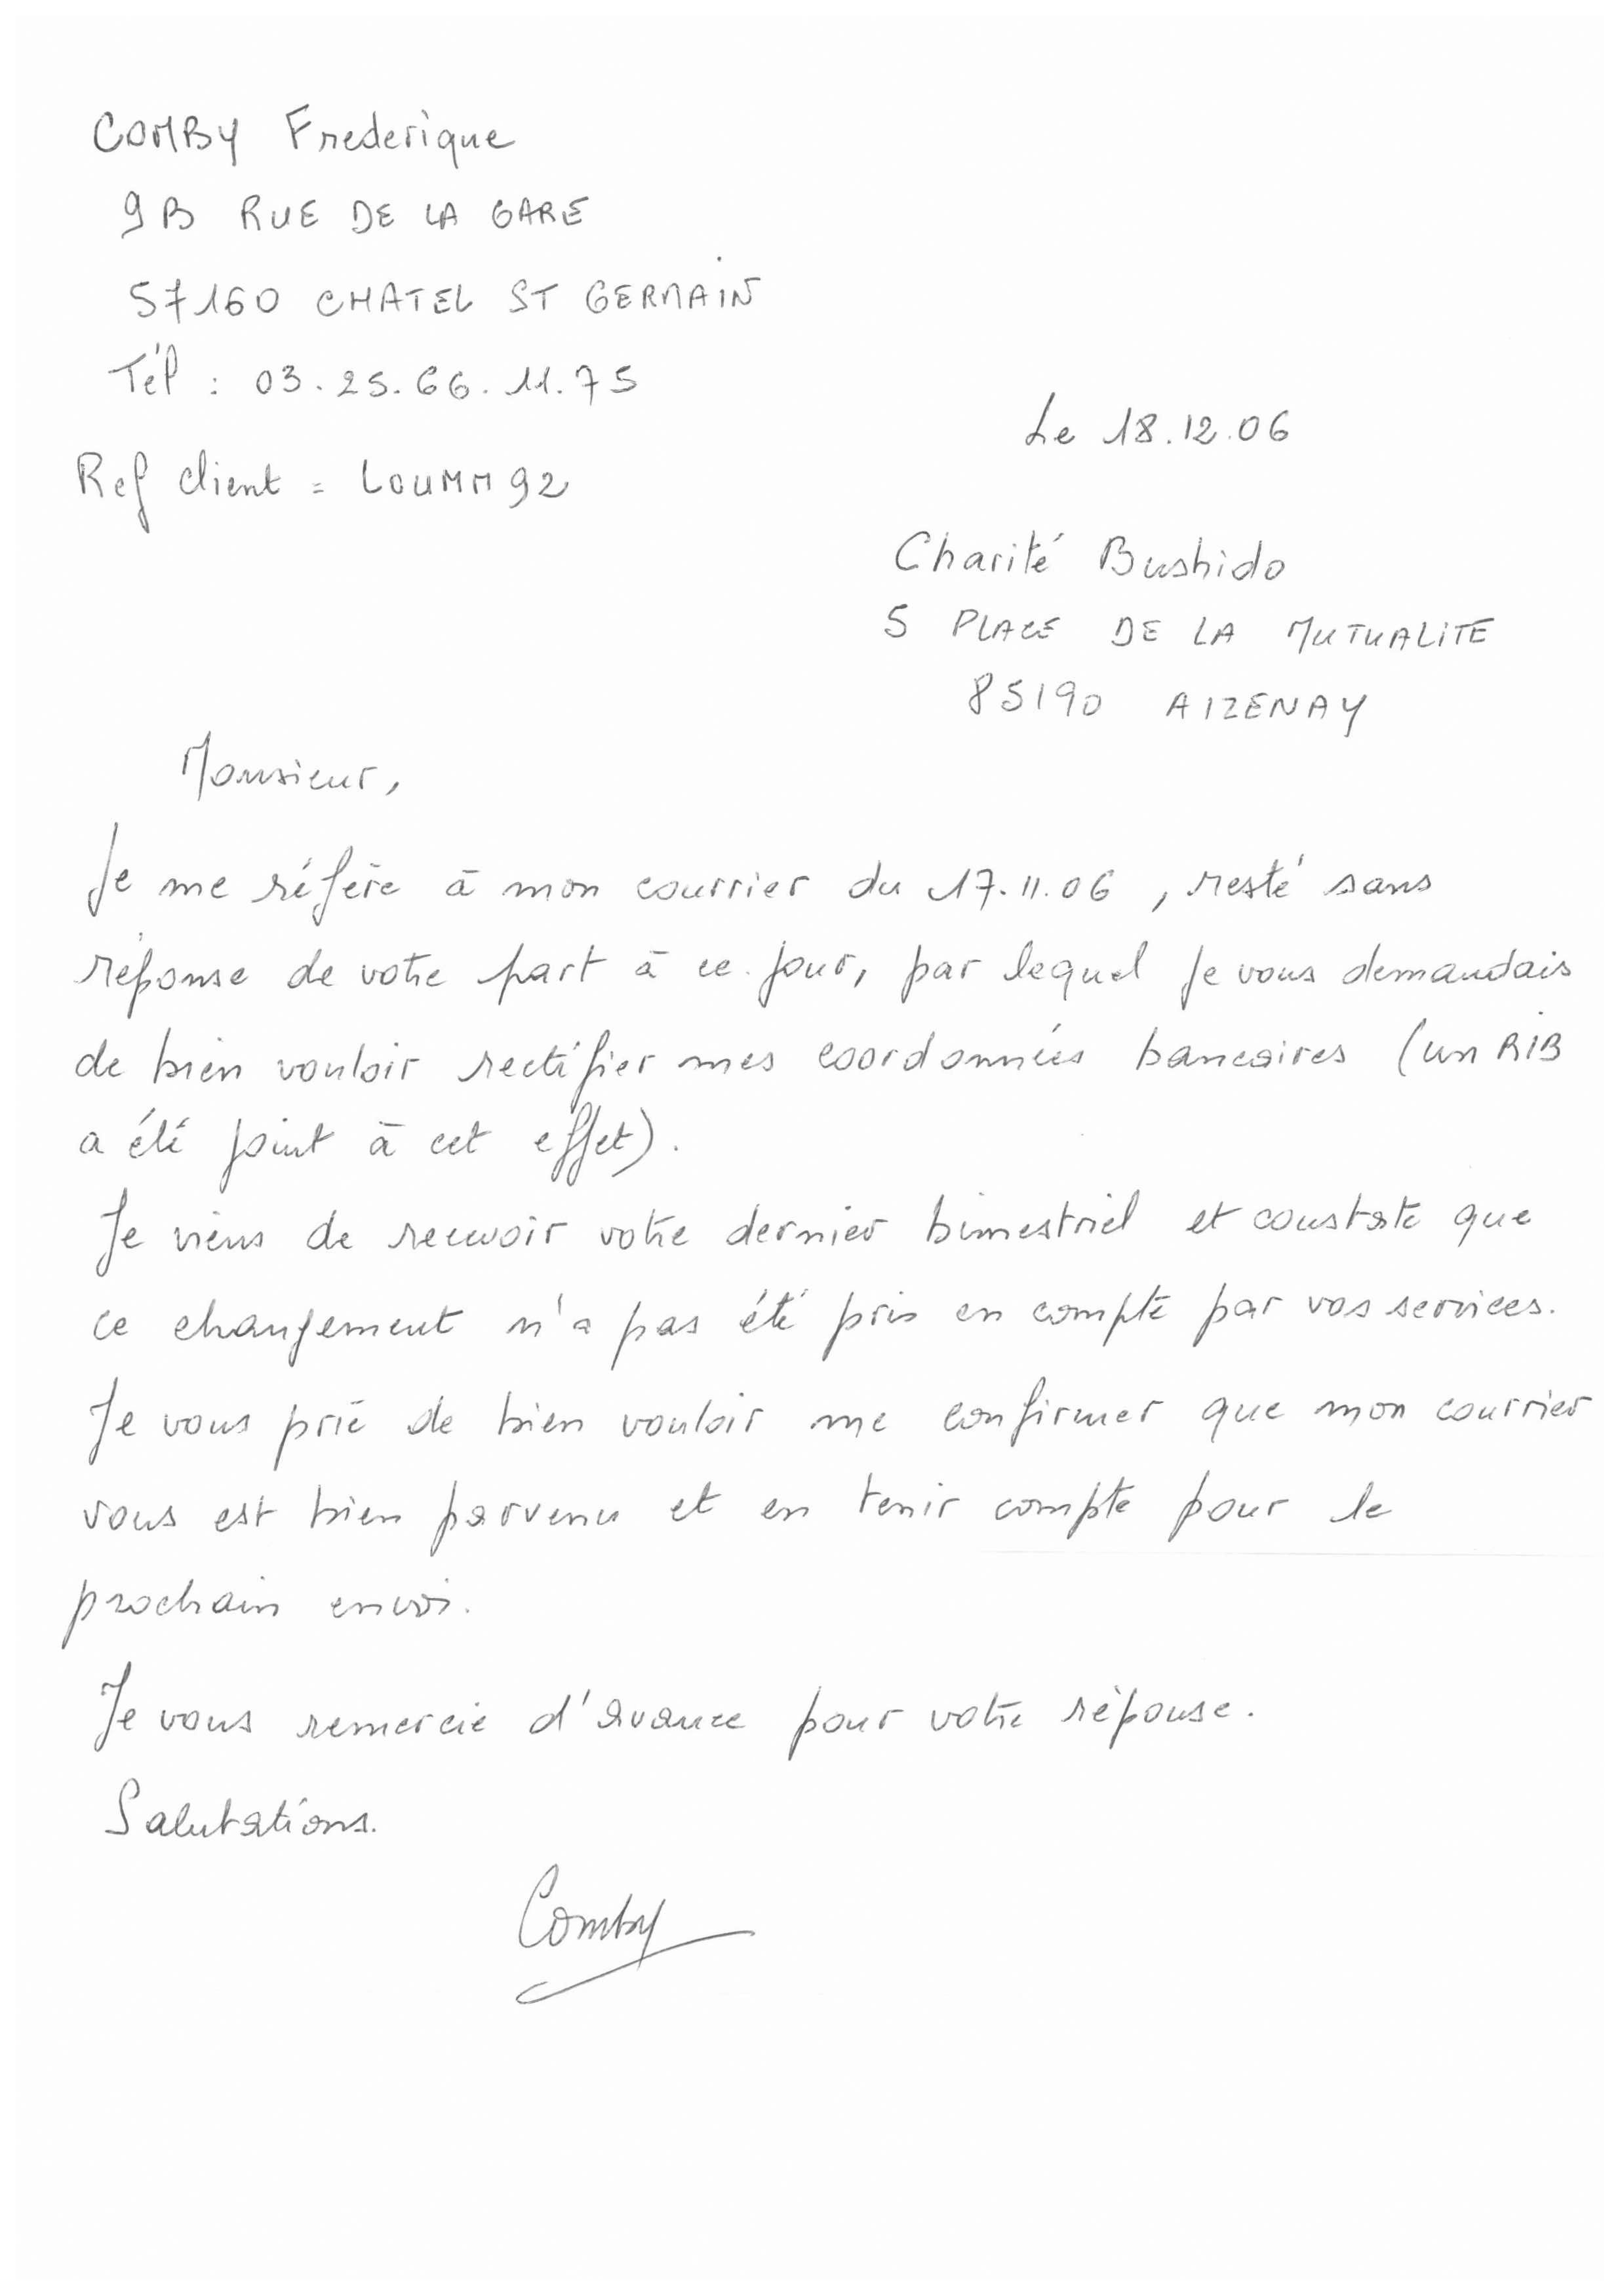 COMBY Frederique
9B RUE DE LA GARE
57160 CHATEL ST GERMAIN
Tél : 03.25.66.11.75
Le 18.12.06
Ref client = LOUMM92
Charité Bushido
5 PLACE DE LA MUTUALITE
85190 AIZENAY
Monsieur,
Je me réfère à mon courrier du 17.11.06, resté sans
réponse de votre part à ce jour, par lequel je vous demandais
de bien vouloir rectifier mes coordonnées bancaires (un RIB
a été joint à cet effet).
Je viens de recevoir votre dernier bimestriel et constate que
ce changement n'a pas été pris en compte par vos services.
Je vous prie de bien vouloir me confirmer que mon courrier
vous est bien parvenu et en tenir compte pour le
prochain envoi.
Je vous remercie d'avance pour votre réponse.
Salutations.
Comby